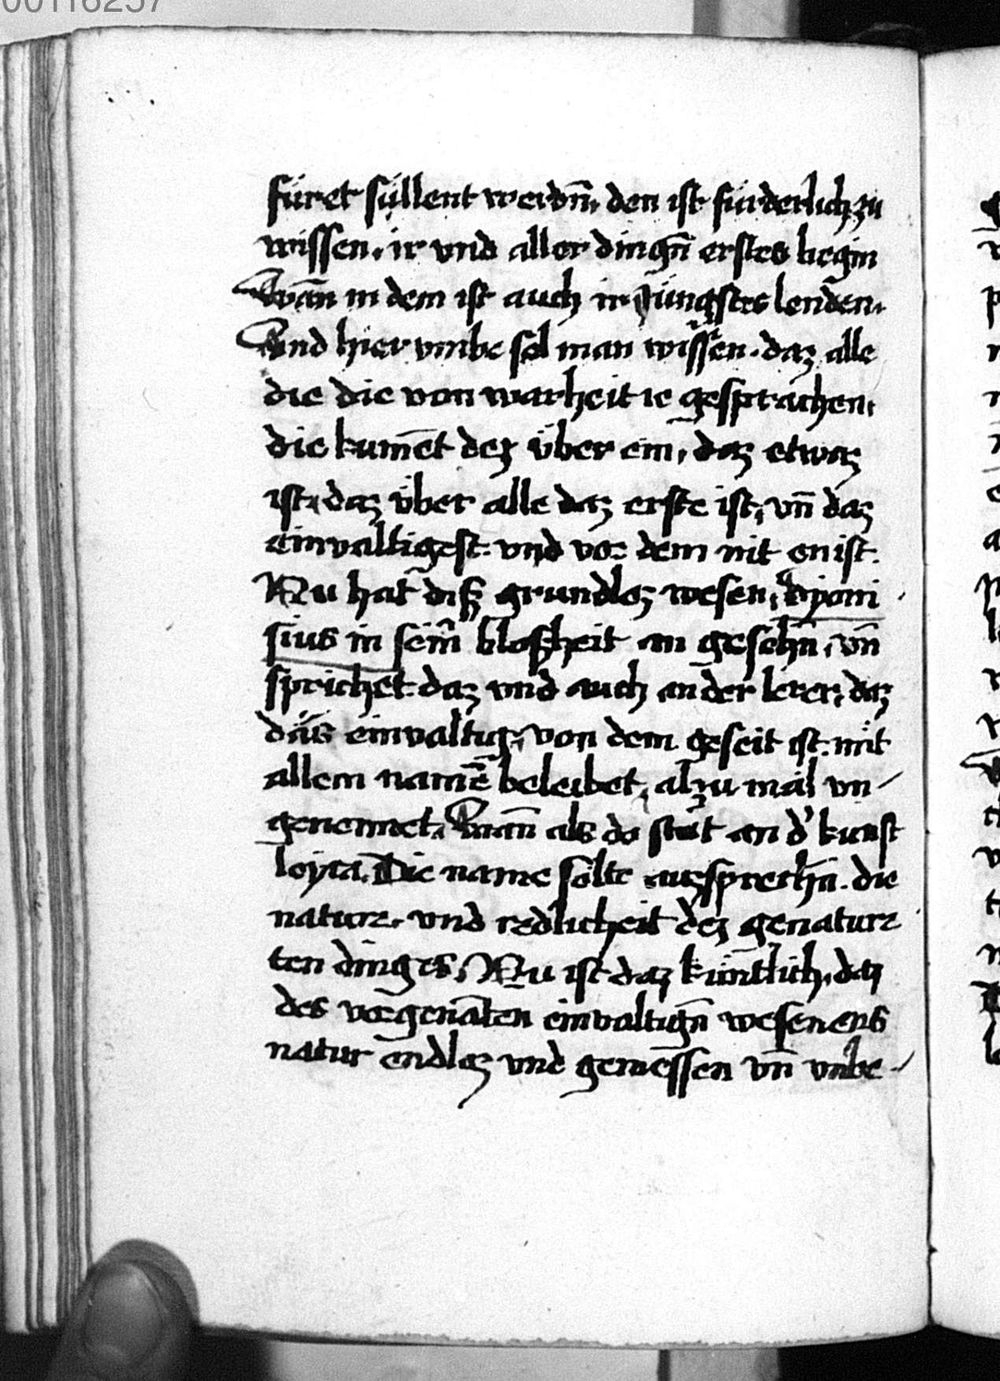 00116257
füret süllent werdn̄, den ist fürderlich zu
wissen. ir vnd aller dingn̄ erstes begin
Wan̄ in dem ist auch ir Jüngstes lenden.
Vnd hier vmbe sol man wissen. daz alle
die die von warheit ie gesprachen,
die kumēt dez über ein, daz etwaz
ist, daz über alle daz erste ist, vn̄ daz
einvaltigest. vnd vor dem nit enist.
Nu hat diß grundloz wesen, dyoni
sius in sein̄ bloßheit an gesehn̄, vn̄
sprichet. daz vnd auch ander lerer, daz
däs einvaltig, von dem geseit ist. mit
allem namē beleibet, alzu mal vn
genennet. Wan̄ als do stat an d' kunst
loyca. Die name sölte aussprechn̄. die
nature. vnd redlicheit dez genature
ten dinges. Nu ist daz küntlich, daz
des vorgenāten einvaltign̄ wesenens
natur endloz vnd gemessen vn̄ vnbe